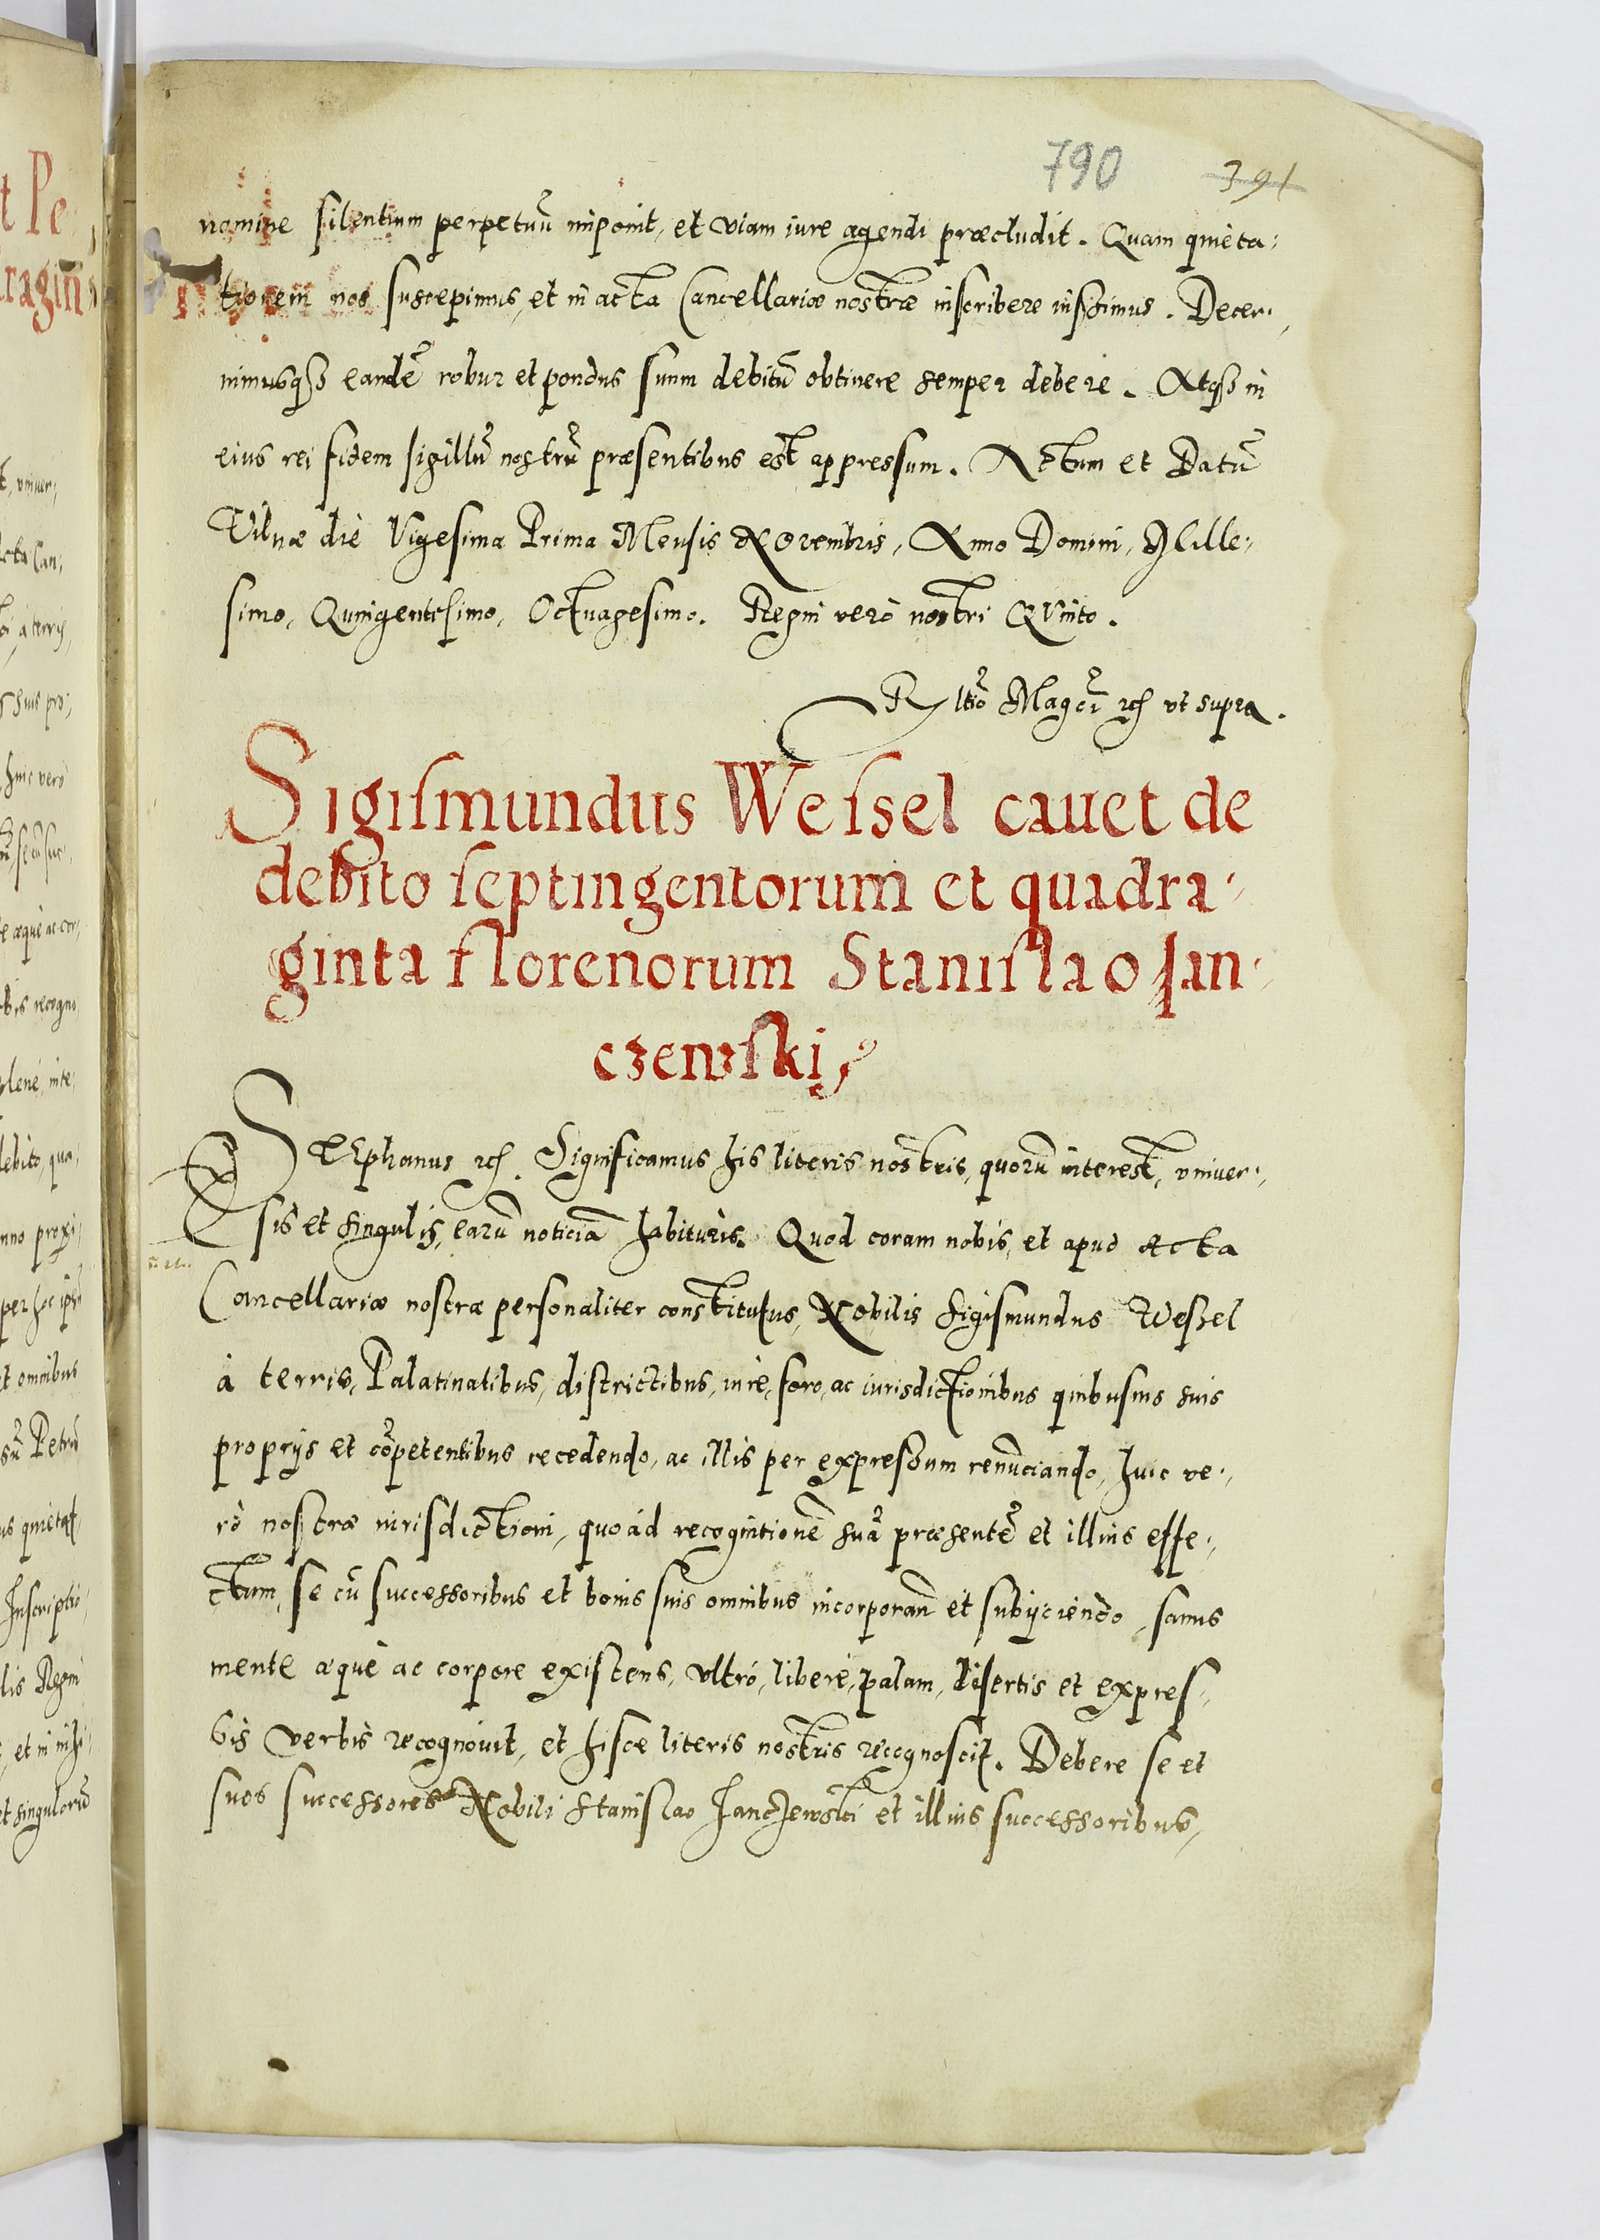 790
391
nomine silentium perpetuũ imponit, et viam iure agendi præcludit. Quam quieta:
tionem nos suscepimus, et in acta Cancellariæ nostræ inscribere iussimus. Decer:
nimusqȝ eandẽ robur et pondus suum debitũ obtinere semper debere. Atqȝ in
eius rei fidem sigillũ nostrũ præsentibus est appressum. Actum et Datũ
Vilnæ die Vigesima Prima Mensis Novembris, Anno Domini, Mille:
simo, Quingentesimo, Octuagesimo. Regni verò nostri QVinto.
Rltio Magci rcſ vt supra.
Sigiſmundus Weiſsel cauet de
debito ſeptingentorum et quadra:
ginta florenorum Staniſlao Jan:
czewſki
STEphanus rcſ. Significamus his literis nostris, quorũ interest, vniuer:
sis et singulis, earũ noticiã habituris. Quod coram nobis, et apud Acta
Cancellariæ nostræ personaliter constitutus, Nobilis Sigismundus Weßel
à terris, Palatinatibus, districtibus, iure, foro, ac iurisdictionibus quibusuis suis
proprijs et cõpetentibus recedendo, ac illis per expressum renunciando, huic ve:
rò nostræ iurisdictioni, quoad recognitionẽ suã præsentẽ et illius effe:
ctum, se cũ successoribus et bonis suis omnibus incorporanđ et subijciendo, sanus
mente æquè ac corpore existens, vltrò, liberè, palam, disertis et expres:
sis verbis recognouit, et hisce literis nostris recognoscit. Debere se et
suos successores Nobili Stanislao Janczewski et illius successoribus,
t Pe
ragiñ
t, vniuer:
suis pro:
huic verò
e æquè ac cor:
recogno
debito, qua
nno proxi:
per hoc ipsũ
et omnibus
Petrũ
us quietat
Inscriptio
lis Regni
et singulorũ